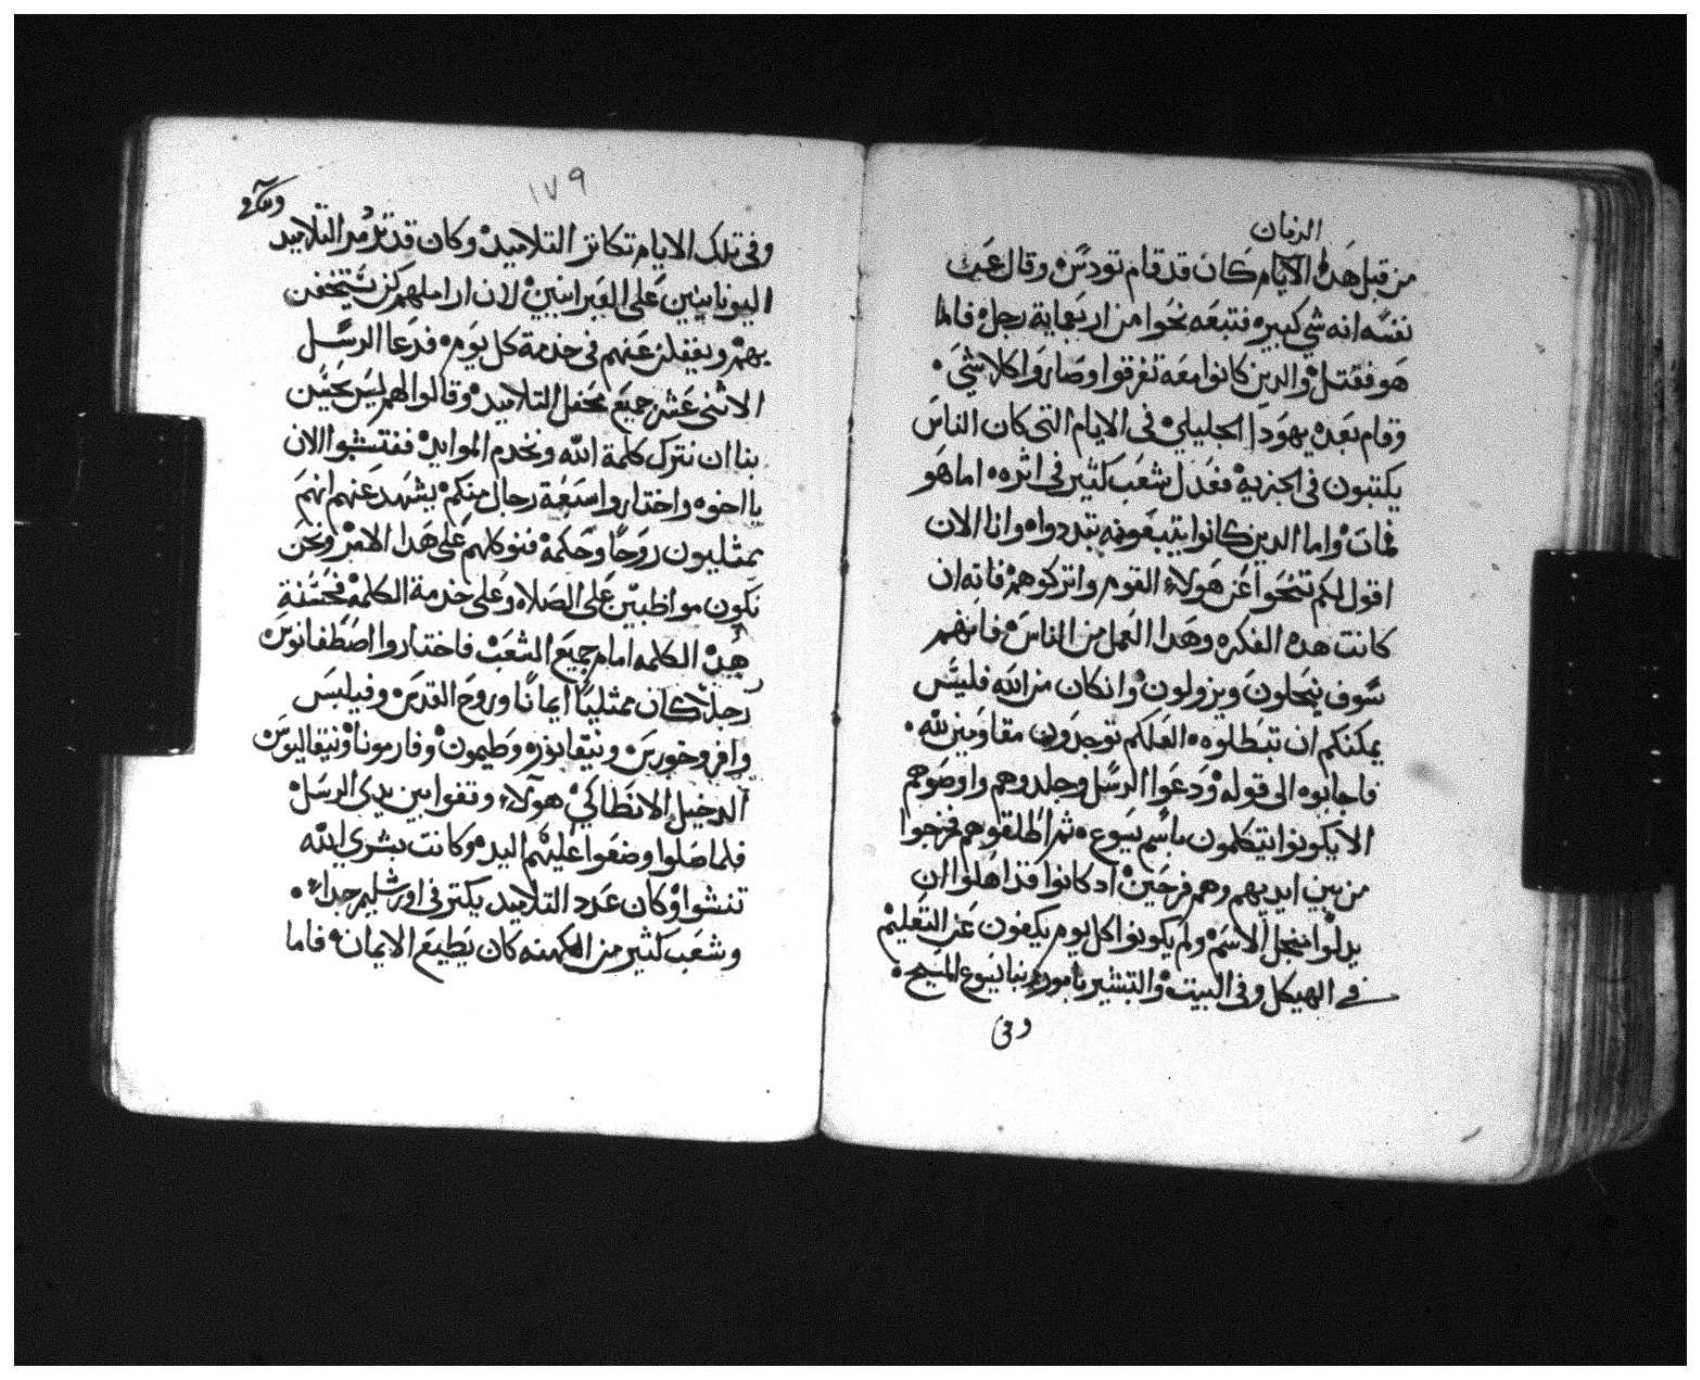 الزمان
من قبل هذه الايام كان قد قام تودس وقال عن
نفسه انه شي كبيره فتبعه نحوا من اربعماية رجل فاما
هو فقتل والدين كانوا معه تفرقوا وصاروا كلا شي
وقام بعده يهودا الجليلي في الايام التي كان الناس
يكتبون في الجزية فعدل شعب كثير في اثره اما هو
فمات واما الدين كانوا يتبعونه تبددوا وانا الان
اقول لكم تنحوا عن هولاء القوم واتركوهم فانه ان
كانت هده الفكره وهدا العمل من الناس فانهم
سوف ينحلون ويزولون وان كان من الله فليس
يمكنكم ان تبطلوه لعلكم توجدون مقاومين لله
فاجابوه الى قوله ودعوا الرسل وجلدوهم واوصوهم
الا يكونوا يتكلمون باسم يسوع ثم اطلقوهم فخرجوا
من بين ايديهم وهم فرحين اد كانوا قد اهلوا ان
يدلوا من اجل الاسم ولم يكونوا كل يوم يكفون عن التعليم
في الهيكل وفي البيت والتبشير بامور ربنا يسوع المسيح
وفي
١٧٩
وفي تلك الايام تكاثر التلاميد وكان قد تدمر التلاميد
اليونانيين على العبرانيين لان اراملهم كن يستخفن
بهم ويغفلن عنهم في خدمة كل يوم فدعا الرسل
الاثنى عشر جميع محفل التلاميد وقالوا لهم ليس يحسن
بنا ان نترك كلمة الله ونخدم الموايد ففتشوا الان
يا اخوه واختاروا سبعة رجال منكم يشهد عنهم انهم
ممتليون روحا وحكمه فنوكلهم على هدا الامر ونحن
نكون مواظبين على الصلاه وعلى خدمة الكلمه فحسنة
هده الكلمه امام جميع الشعب فاختاروا اصطفانوس
رجلا كان ممتليا ايمانا وروح القدس وفيلبس
وافروخورس ونيقانوره وطيمون وفارمونا ونيقاليوس
الدخيل الانطاكي هولاء وقفوا بين يدي الرسل
فلما صلوا وضعوا عليهم اليد وكانت بشرى الله
تنشوا وكان عدد التلاميد يكتر في اورشليم جدا
وشعب كثير من الكهنه كان يطيع الايمان فاما